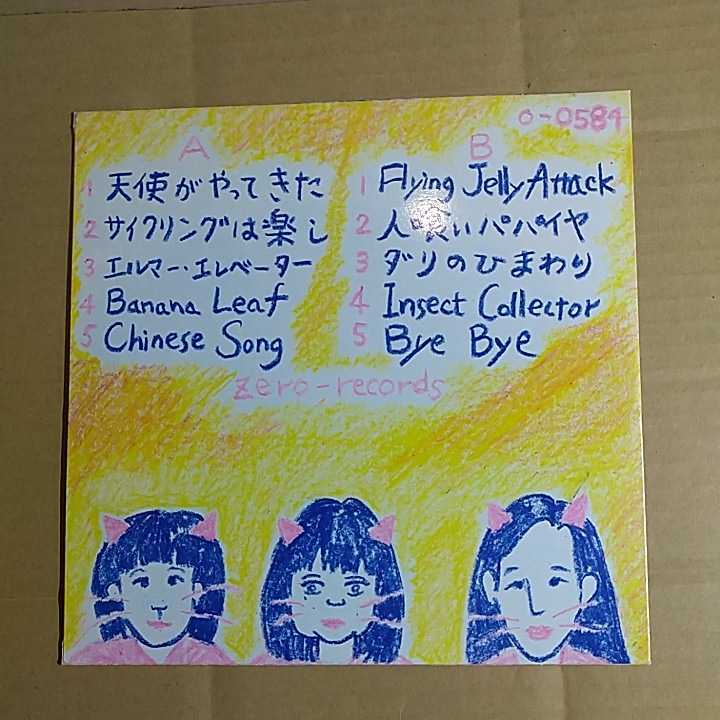 0-0584
A
1 天使がやってきた
2 サイクリングは楽し
3 エルマー・エレベーター
4 Banana Leaf
5 Chinese Song
B
1 Flying Jelly Attack
2 人喰いパパイヤ
3 ダリのひまわり
4 Insect Collector
5 Bye Bye
zero-records